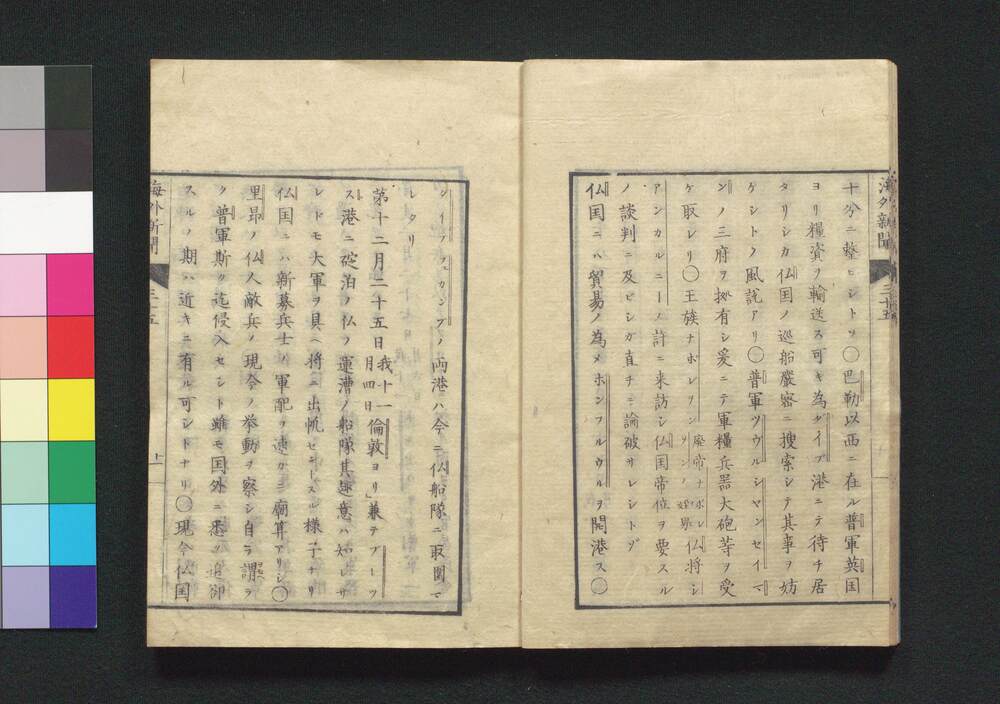 海外新聞
三十五
十分ニ整ヒシトゾ○巴勒以西ニ在ル普軍英国
ヨリ糧資ヲ輸送ス可キ為ゼイプ港ニテ待チ居
タリシカ仏国ノ巡船厳密ニ捜索シテ其事ヲ妨
ケシトノ風説アリ○普軍ツウルシヤンセイマ
ンノ三府ヲ拠有シ爰ニテ軍糧兵器大砲等ヲ受
ケ取レリ○王族ナポレヲン廃帝ナポレヲンノ 仏将シ
アンカルニーノ許ニ来訪シ仏国帝位ヲ要スル
ノ談判ニ及ヒシガ直チニ論破サレシトゾ
仏国ニハ貿易ノ為メホンフルウルヲ開港ス○
シイフフカンプノ両港ハ今ニ仏船隊ニ取囲マ
レタリ
第十二月二十五日我十一月四日倫敦ヨリ」兼テブーツ
ス港ニ碇泊ノ仏ノ運漕ノ船隊其趣意ハ知レサ
レドモ大軍ヲ具ヘ将ニ出帆セントスル様子ナリ
仏国ニハ新募兵士ノ軍配ヲ速カニ廟算アリシ○
里昂ノ仏人敵兵ノ現今ノ挙動ヲ察シ自ラ謂ヘラ
ク普軍斯ク迄侵入セシト雖モ国外ニ悉ク追却
スルノ期ハ近キニ有ル可シトナリ○現今仏国
海外新聞
三十五
十一